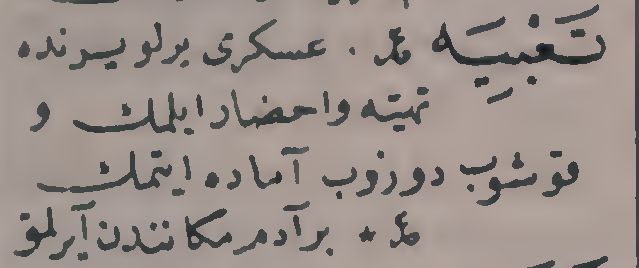 تَعْبِيَه ع . عسكرى يرلو يرنده
تهيئه و احضار ايلمك و
قوشوب دوزوب آماده ايتمك
ع * بر آدم مكانندن آيرلمق